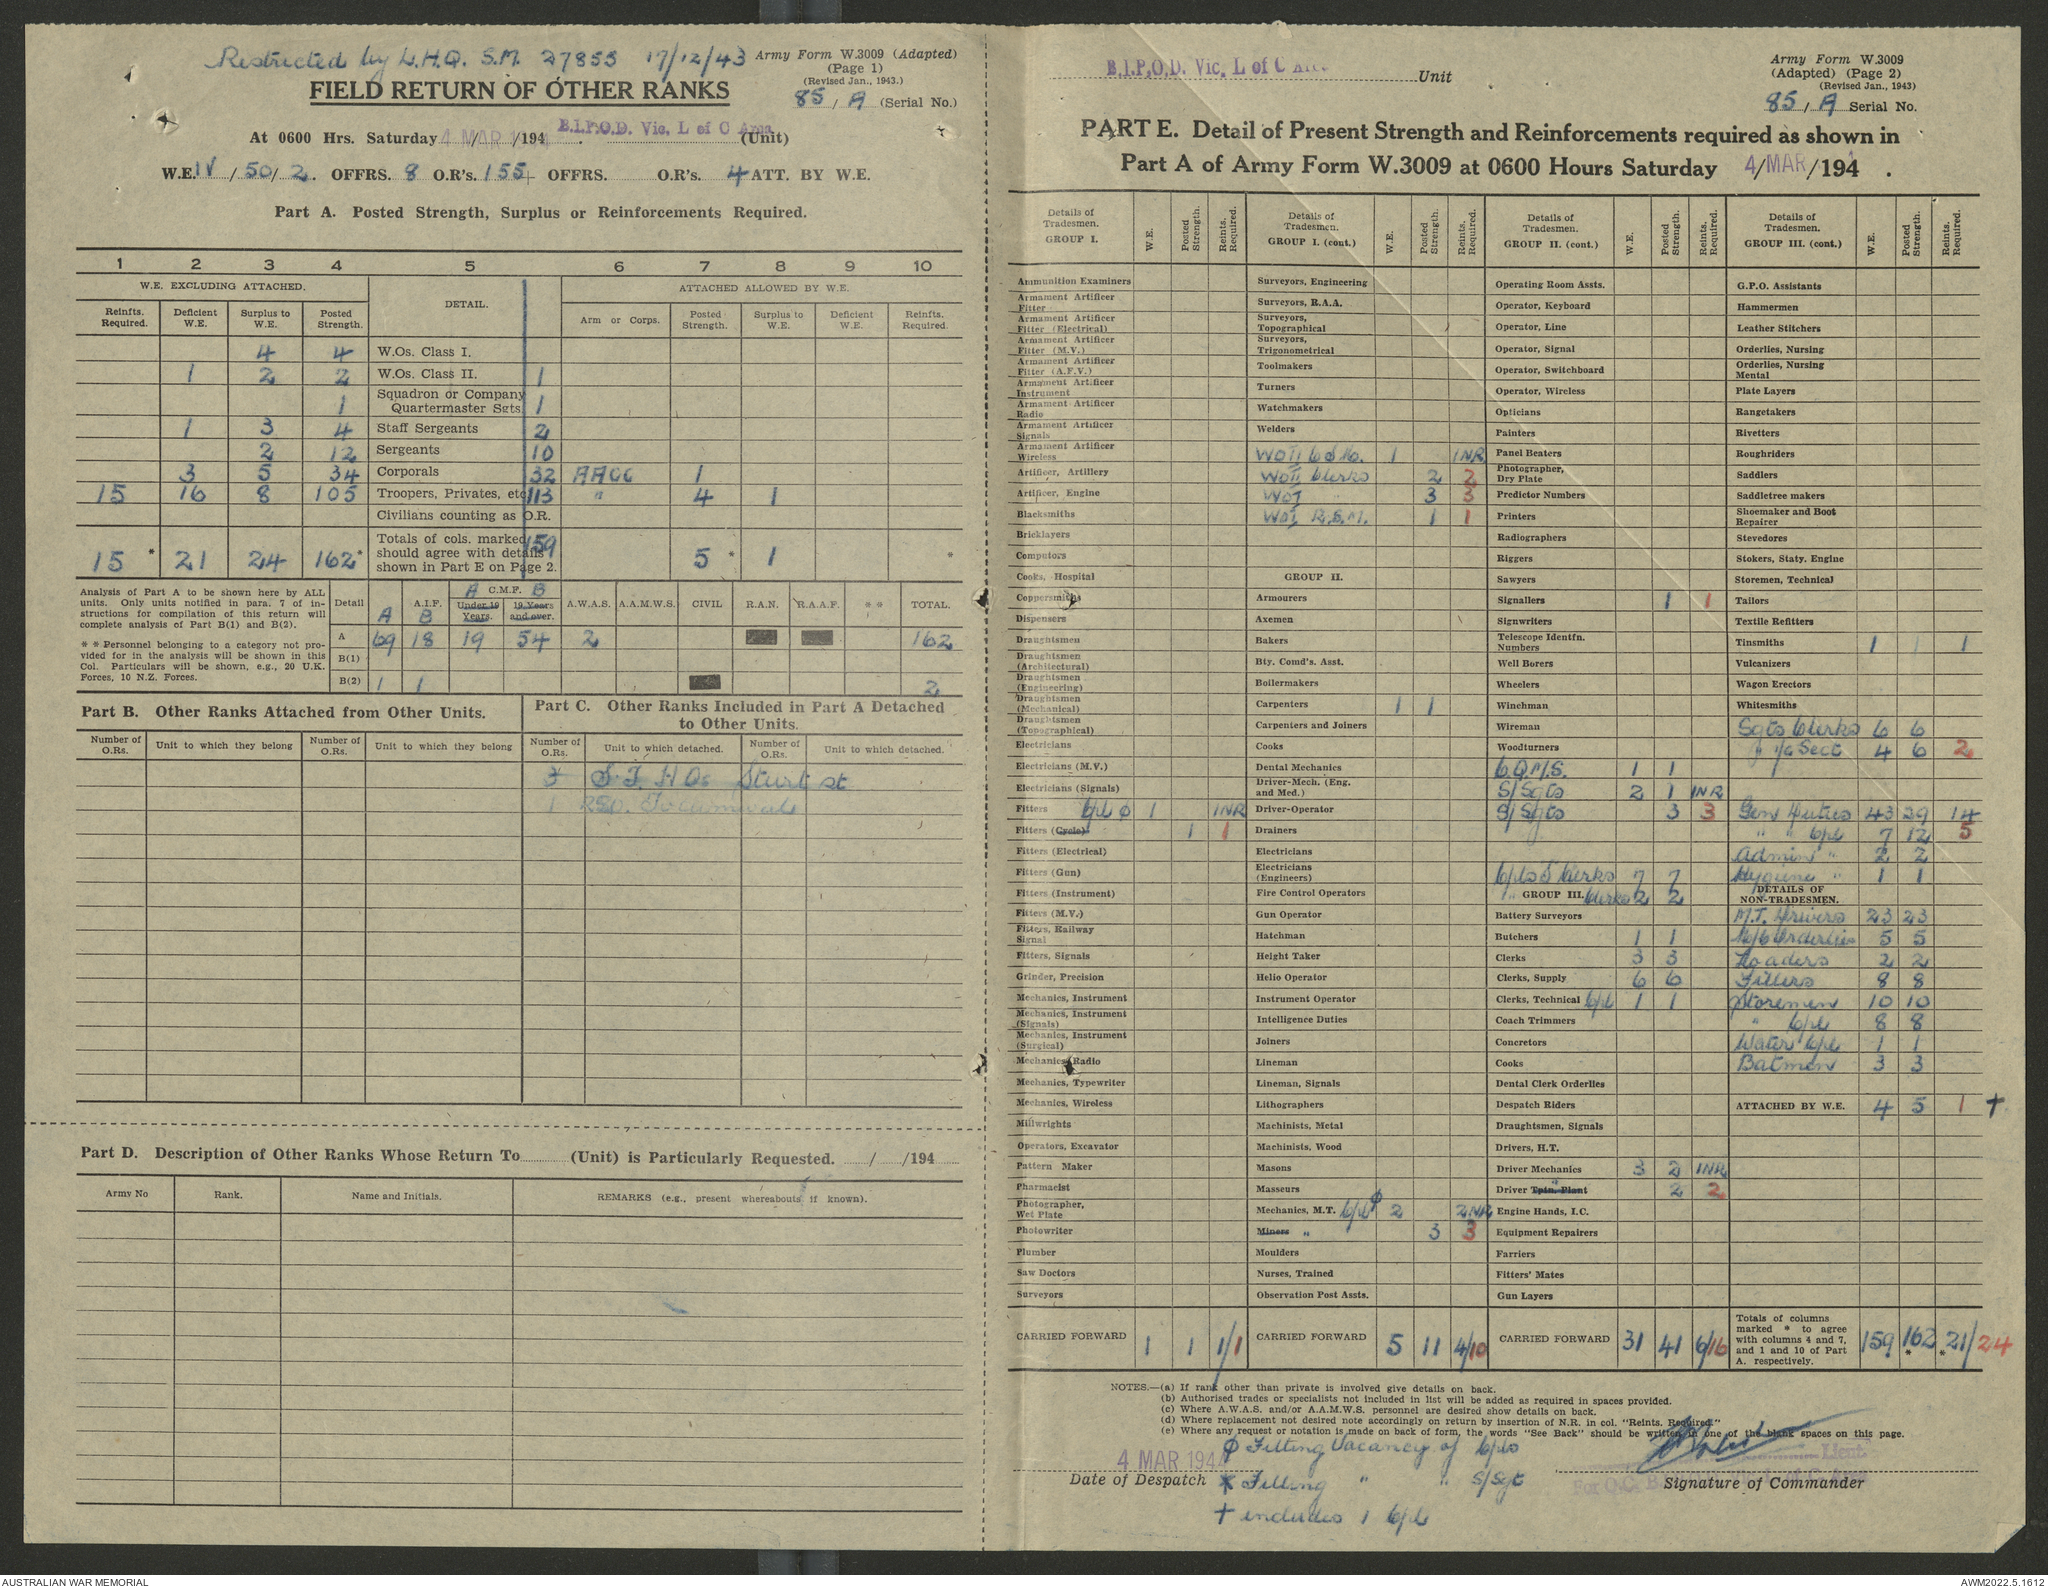 Restricted by L.H.Q. S.M. 27855 17/12/43
Army Form W.3009 (Adapted)
(Page 1)
(Revised Jan., 1943.)
FIELD RETURN OF OTHER RANKS
85 / A (Serial No.)
At 0600 Hrs. Saturday 4 MAR /194 B.I.P.O.D. Vic. L of C Area (Unit)
W.E. IV / 50 / 2. OFFRS. 8 O.R's. 155+ OFFRS. O.R's. 4 ATT. BY W.E.
Part A. Posted Strength, Surplus or Reinforcements Required.
1 2 3 4 5 6 7 8 9 10
W.E. EXCLUDING ATTACHED. DETAIL. ATTACHED ALLOWED BY W.E.
Reinfts. Required. Deficient W.E. Surplus to W.E. Posted Strength. Arm or Corps. Posted Strength. Surplus to W.E. Deficient W.E. Reinfts. Required.
4 4 W.Os. Class I.
1 2 2 W.Os. Class II. 1
1 Squadron or Company Quartermaster Sgts. 1
1 3 4 Staff Sergeants 2
2 12 Sergeants 10
3 5 34 Corporals 32 AACC 1
15 16 8 105 Troopers, Privates, etc. 113 " 4 1
Civilians counting as O.R.
15 * 21 24 162 * Totals of cols. marked * should agree with details shown in Part E on Page 2. 159 5 * 1 *
Analysis of Part A to be shown here by ALL units. Only units notified in para. 7 of instructions for compilation of this return will complete analysis of Part B(1) and B(2).
** Personnel belonging to a category not provided for in the analysis will be shown in this Col. Particulars will be shown, e.g., 20 U.K. Forces, 10 N.Z. Forces.
Detail A.I.F. A B C.M.F. A B Under 19 Years. 19 Years and over. A.W.A.S. A.A.M.W.S. CIVIL R.A.N. R.A.A.F. ** TOTAL.
A 69 18 19 54 2 162
B(1)
B(2) 1 1 2
Part B. Other Ranks Attached from Other Units.
Part C. Other Ranks Included in Part A Detached to Other Units.
Number of O.Rs. Unit to which they belong Number of O.Rs. Unit to which they belong Number of O.Rs. Unit to which detached. Number of O.Rs. Unit to which detached.
S.T. H Qs Sturt St
1
Part D. Description of Other Ranks Whose Return To (Unit) is Particularly Requested. / /194
Army No Rank. Name and Initials. REMARKS (e.g., present whereabouts if known).
B.I.P.O.D. Vic. L of C Unit
Army Form W.3009
(Adapted) (Page 2)
(Revised Jan., 1943)
85 / A Serial No.
PART E. Detail of Present Strength and Reinforcements required as shown in
Part A of Army Form W.3009 at 0600 Hours Saturday 4/MAR/194 .
Details of Tradesmen. GROUP I. W.E. Posted Strength. Reints. Required.
Ammunition Examiners
Armament Artificer Fitter
Armament Artificer Fitter (Electrical)
Armament Artificer Fitter (M.V.)
Armament Artificer Fitter (A.F.V.)
Armament Artificer Instrument
Armament Artificer Radio
Armament Artificer Signals
Armament Artificer Wireless
Artificer, Artillery
Artificer, Engine
Blacksmiths
Bricklayers
Computors
Cooks, Hospital
Coppersmiths
Dispensers
Draughtsmen
Draughtsmen (Architectural)
Draughtsmen (Engineering)
Draughtsmen (Mechanical)
Draughtsmen (Topographical)
Electricians
Electricians (M.V.)
Electricians (Signals)
Fitters Cpl ϕ 1 1NR
Fitters (Cycle) 1 1
Fitters (Electrical)
Fitters (Gun)
Fitters (Instrument)
Fitters (M.V.)
Fitters, Railway Signal
Fitters, Signals
Grinder, Precision
Mechanics, Instrument
Mechanics, Instrument (Signals)
Mechanics, Instrument (Surgical)
Mechanics, Radio
Mechanics, Typewriter
Mechanics, Wireless
Millwrights
Operators, Excavator
Pattern Maker
Pharmacist
Photographer, Wet Plate
Photowriter
Plumber
Saw Doctors
Surveyors
CARRIED FORWARD 1 1 1/1
Details of Tradesmen. GROUP I. (cont.) W.E. Posted Strength. Reints. Required.
Surveyors, Engineering
Surveyors, R.A.A.
Surveyors, Topographical
Surveyors, Trigonometrical
Toolmakers
Turners
Watchmakers
Welders
WOII C.S.M. 1 1NR
WOII Clerks 2 2
WOI " 3 3
WOI R.S.M. 1 1
GROUP II.
Armourers
Axemen
Bakers
Bty. Comd's. Asst.
Boilermakers
Carpenters 1 1
Carpenters and Joiners
Cooks
Dental Mechanics
Driver-Mech. (Eng. and Med.)
Driver-Operator
Drainers
Electricians
Electricians (Engineers)
Fire Control Operators
Gun Operator
Hatchman
Height Taker
Helio Operator
Instrument Operator
Intelligence Duties
Joiners
Lineman
Lineman, Signals
Lithographers
Machinists, Metal
Machinists, Wood
Masons
Masseurs
Mechanics, M.T. Cpl ϕ 2 2NR
Miners " 3 3
Moulders
Nurses, Trained
Observation Post Assts.
CARRIED FORWARD 5 11 4/10
Details of Tradesmen. GROUP II. (cont.) W.E. Posted Strength. Reints. Required.
Operating Room Assts.
Operator, Keyboard
Operator, Line
Operator, Signal
Operator, Switchboard
Operator, Wireless
Opticians
Painters
Panel Beaters
Photographer, Dry Plate
Predictor Numbers
Printers
Radiographers
Riggers
Sawyers
Signallers 1 1
Signwriters
Telescope Identfn. Numbers
Well Borers
Wheelers
Winchman
Wireman
Woodturners
C.Q.M.S. 1 1
S/Sgts 2 1 1NR
S/Sgts 3 3
Cpls Clerks 7 7
" GROUP III. Clerks 2 2
Battery Surveyors
Butchers 1 1
Clerks 3 3
Clerks, Supply 6 6
Clerks, Technical Cpl 1 1
Coach Trimmers
Concretors
Cooks
Dental Clerk Orderlies
Despatch Riders
Draughtsmen, Signals
Drivers, H.T.
Driver Mechanics 3 2 1NR
Driver Tptn. Plant " 2 2
Engine Hands, I.C.
Equipment Repairers
Farriers
Fitters' Mates
Gun Layers
CARRIED FORWARD 31 41 6/16
Details of Tradesmen. GROUP III. (cont.) W.E. Posted Strength. Reints. Required.
G.P.O. Assistants
Hammermen
Leather Stitchers
Orderlies, Nursing
Orderlies, Nursing Mental
Plate Layers
Rangetakers
Rivetters
Roughriders
Saddlers
Saddletree makers
Shoemaker and Boot Repairer
Stevedores
Stokers, Staty. Engine
Storemen, Technical
Tailors
Textile Refitters
Tinsmiths 1 1 1
Vulcanizers
Wagon Erectors
Whitesmiths
Sgts Clerks 6 6
" i/c Sect 4 6 2
Gen Duties 43 29 14
" " Cpl 7 12 5
Admin " 2 2
Hygiene " 1 1
DETAILS OF NON-TRADESMEN.
M.T. Drivers 23 23
M/C Orderlies 5 5
Loaders 2 2
Fillers 8 8
Storemen 10 10
" Cpl 8 8
Water Cpl 1 1
Batmen 3 3
ATTACHED BY W.E. 4 5 1 †
Totals of columns marked * to agree with columns 4 and 7, and 1 and 10 of Part A. respectively. 159 162 * * 21/24
NOTES.—(a) If rank other than private is involved give details on back.
(b) Authorised trades or specialists not included in list will be added as required in spaces provided.
(c) Where A.W.A.S. and/or A.A.M.W.S. personnel are desired show details on back.
(d) Where replacement not desired note accordingly on return by insertion of N.R. in col. "Reints. Required."
(e) Where any request or notation is made on back of form, the words "See Back" should be written in one of the blank spaces on this page.
ϕ Filling Vacancy of Cpls
4 MAR 194
Lieut
Date of Despatch * Filling " " S/Sgt
For O.C.
Signature of Commander
† includes 1 Cpl
AUSTRALIAN WAR MEMORIAL
AWM2022.5.1612